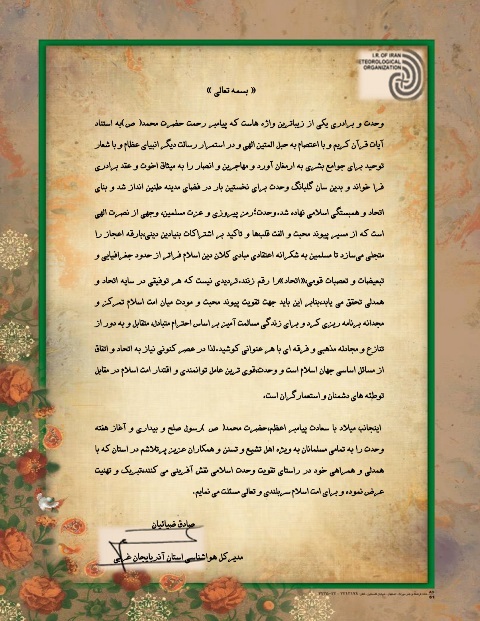 I.R. OF IRAN
METEOROLOGICAL
ORGANIZATION
« بسمه تعالی »
وحدت و برادری یکی از زیباترین واژه هاست که پیامبر رحمت حضرت محمد( ص )به استناد
آیات قرآن کریم و با اعتصام به حبل المتین الهی و در استمرار رسالت دیگر انبیای عظام و با شعار
توحید برای جوامع بشری به ارمغان آورد و مهاجرین و انصار را به میثاق اخوت و عقد برادری
فرا خواند و بدین سان گلبانگ وحدت برای نخستین بار در فضای مدینه طنین انداز شد و بنای
اتحاد و همبستگی اسلامی نهاده شد.وحدت؛رمز پیروزی و عزت مسلمین، وجهی از نصرت الهی
است که از مسیر پیوند محبت و الفت قلب‌ها و تاکید بر اشتراکات بنیادین دینی،بارقه اعجاز را
متجلی می‌سازد تا مسلمین به شکرانه اعتقادی مبادی کلان دین اسلام فراتر از حدود جغرافیایی و
تبعیضات و تعصبات قومی؛«اتحاد»را رقم زنند.تردیدی نیست که هر توفیقی در سایه اتحاد و
همدلی تحقق می یابد؛بنابر این باید جهت تقویت پیوند محبت و مودت میان امت اسلام تمرکز و
مجدانه برنامه ریزی کرد و برای زندگی مسالمت آمیز بر اساس احترام متبادله متقابل و به دور از
تنازع و مجادله مذهبی و فرقه ای با هر عنوانی کوشید.لذا در عصر کنونی نیاز به اتحاد و اتفاق
از مسائل اساسی جهان اسلام است و وحدت،قوی ترین عامل توانمندی و اقتدار امت اسلام در مقابل
توطئه های دشمنان و استعمارگران است.
اینجانب میلاد با سعادت پیامبر اعظم،حضرت محمد( ص )رسول صلح و بیداری و آغاز هفته
وحدت را به تمامی مسلمانان به ویژه اهل تشیع و تسنن و همکاران عزیز پرتلاشم در استان که با
همدلی و همراهی خود در راستای تقویت وحدت اسلامی نقش آفرینی می کنند،تبریک و تهنیت
عرض نموده و برای امت اسلام سربلندی و تعالی مسئلت می نمایم.
صادق ضیائیان
مدیرکل هواشناسی استان آذربایجان غربی